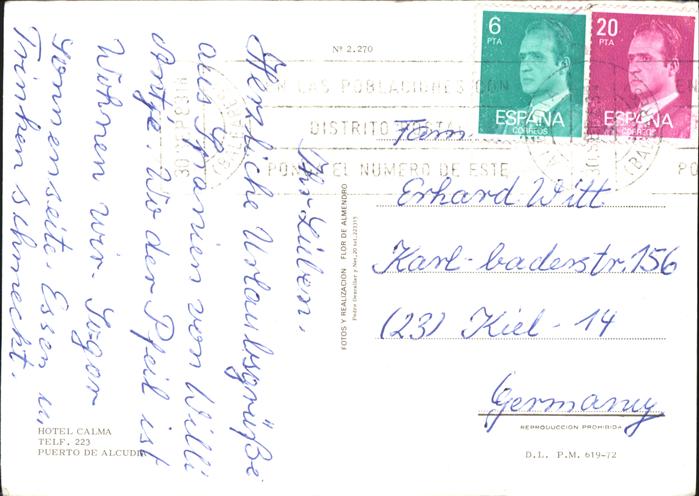 Nº 2.270
6
PTA
ESPAÑA
CORREOS
20
PTA
ESPAÑA
CORREOS
EN LAS POBLACIONES CON
DISTRITO POSTAL
PONGA EL NUMERO DE ESTE
PO
Ihr Lieben,
Herzliche Urlaubsgrüße
aus Spanien von Willi
Antje. Wo der Pfeil ist
Wohnen wir Sogar
Sonnenseite. Essen u.
Trinken schmeckt.
Fam.
Erhard Witt
Karl-baderstr. 156
(23) Kiel - 14
Germany
FOTOS Y REALIZACION FLOR DE ALMENDRO
REPRODUCCION PROHIBIDA
D. L. P.M. 619-72
HOTEL CALMA
TELF. 223
PUERTO DE ALCUDIA